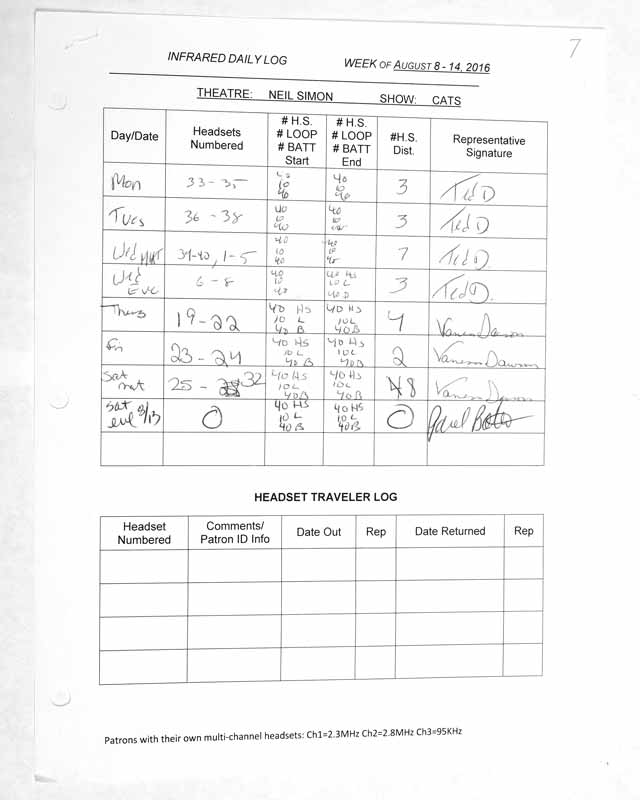 7
INFRARED DAILY LOG WEEK OF AUGUST 8 - 14, 2016
THEATRE: NEIL SIMON SHOW: CATS
Day/Date Headsets Numbered # H.S. # LOOP # BATT Start # H.S. # LOOP # BATT End #H.S. Dist. Representative Signature
Mon 33-35 40 10 40 40 10 40 3 Ted D
Tues 36-38 40 10 40 40 10 40 3 Ted D
Wed MAT 39-40, 1-5 40 10 40 40 10 40 7 Ted D.
Wed EVE 6-8 40 10 40 40 HS 10 L 40 B 3 Ted D.
Thurs 19-22 40 HS 10 L 40 B 40 HS 10 L 40 B 4 Vanessa Dawson
Fri 23-24 40 HS 10 L 40 B 40 HS 10 L 40 B 2 Vanessa Dawson
Sat mat 25-32 40 HS 10 L 40 B 40 HS 10 L 40 B 8 Vanessa Dawson
Sat eve 8/13 0 40 HS 10 L 40 B 40 HS 10 L 40 B 0
HEADSET TRAVELER LOG
Headset Numbered Comments/ Patron ID Info Date Out Rep Date Returned Rep
Patrons with their own multi-channel headsets: Ch1=2.3MHz Ch2=2.8MHz Ch3=95KHz